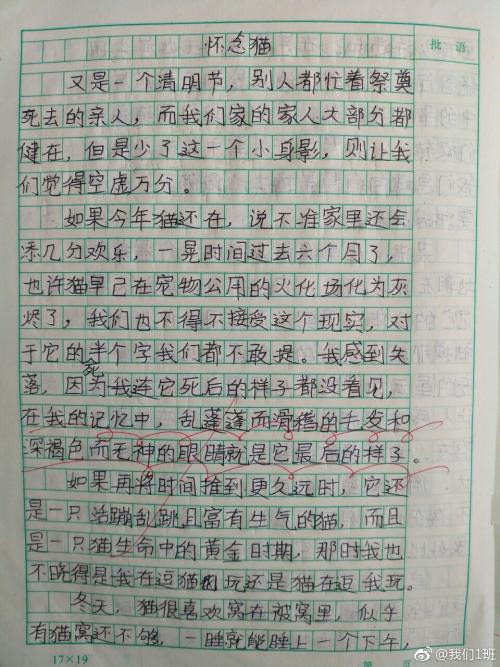 怀念猫
批语
又是一个清明节，别人都忙着祭奠
死去的亲人，而我们家的家人大部分都
健在，但是少了这一个小身影，则让我
们觉得空虚万分。
如果今年猫还在，说不准家里还会
添几分欢乐，一晃时间过去六个月了，
也许猫早已在宠物公用的火化场化为灰
烬了，我们也不得不接受这个现实，对
于它的半个字我们都不敢提。我感到失
死
落，因为我连它死后的样子都没看见，
在我的记忆中，乱蓬蓬而滑稽的毛发和
深褐色而无神的眼睛就是它最后的样子。
如果再将时间推到更久远时，它还
是一只活蹦乱跳且富有生气的猫，而且
是一只猫生命中的黄金时期，那时我也
不晓得是我在逗猫玩还是猫在逗我玩。
冬天，猫很喜欢窝在被窝里，似乎
有猫窝还不够，一睡就能睡上一个下午，
17×19
@我们1班